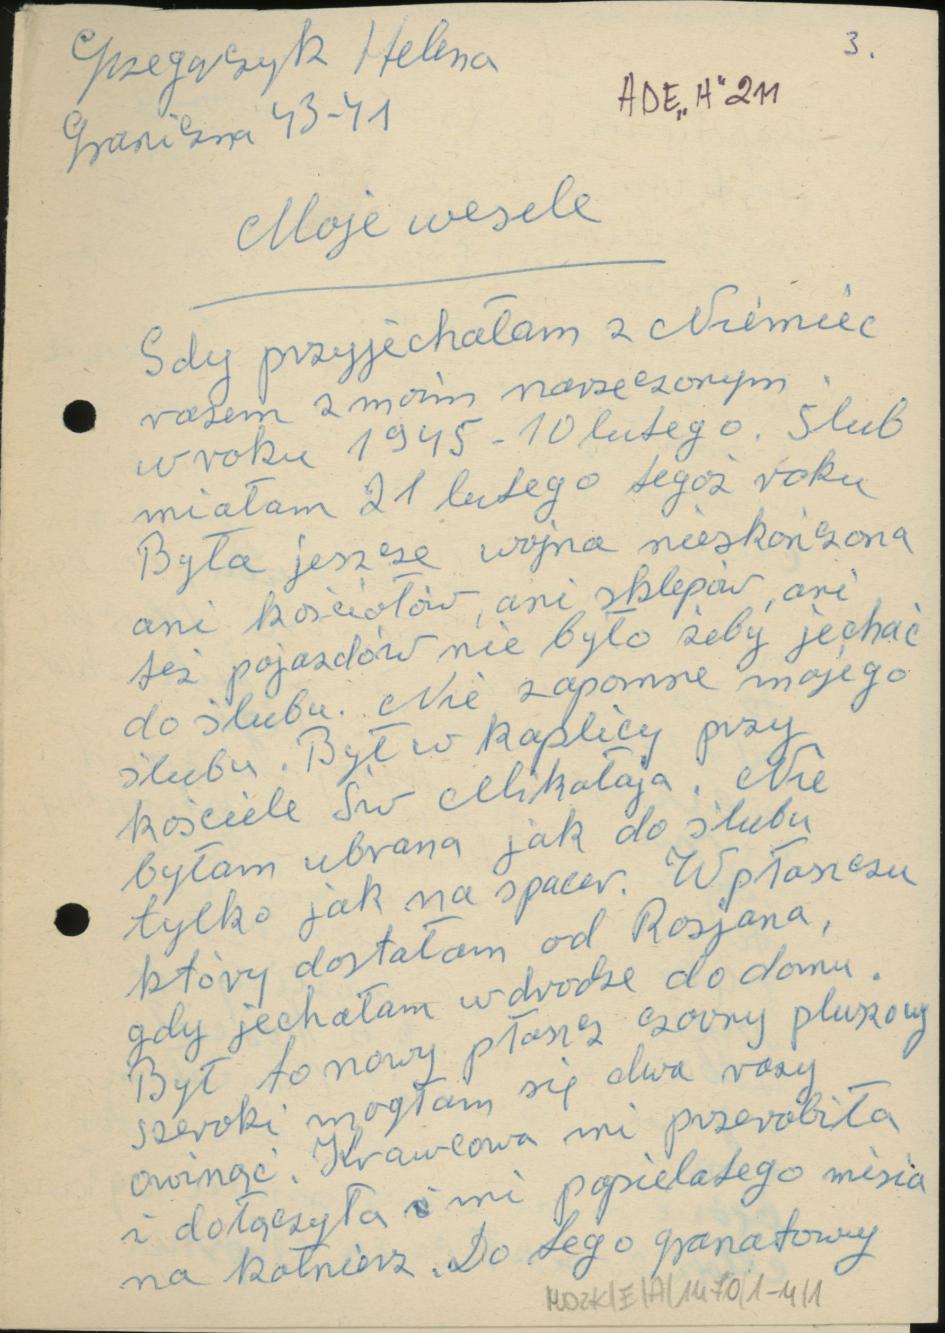 3.
Grzegorczyk Helena
ADE „H" 211
Graniczna 43-41
Moje wesele
Gdy przyjechałam z Niemiec
razem z moim narzeczonym
w roku 1945 - 10 lutego. Ślub
miałam 21 lutego tegoż roku
Była jeszcze wojna nieskończona
ani kościołów, ani sklepów, ani
też pojazdów nie było żeby jechać
do ślubu. Nie zapomnę mojego
ślubu. Był w kaplicy przy
kościele Św Mikołaja. Nie
byłam ubrana jak do ślubu
tylko jak na spacer. W płaszczu
który dostałam od Rosjana,
gdy jechałam w drodze do domu.
Był to nowy płaszcz czarny pluszowy
szeroki mogłam się dwa razy
owinąć. Krawcowa mi przerobiła
i dołączyła mi popielatego misia
na kołnierz. Do tego granatowy
MDZK/E/A/1470/1-4/1